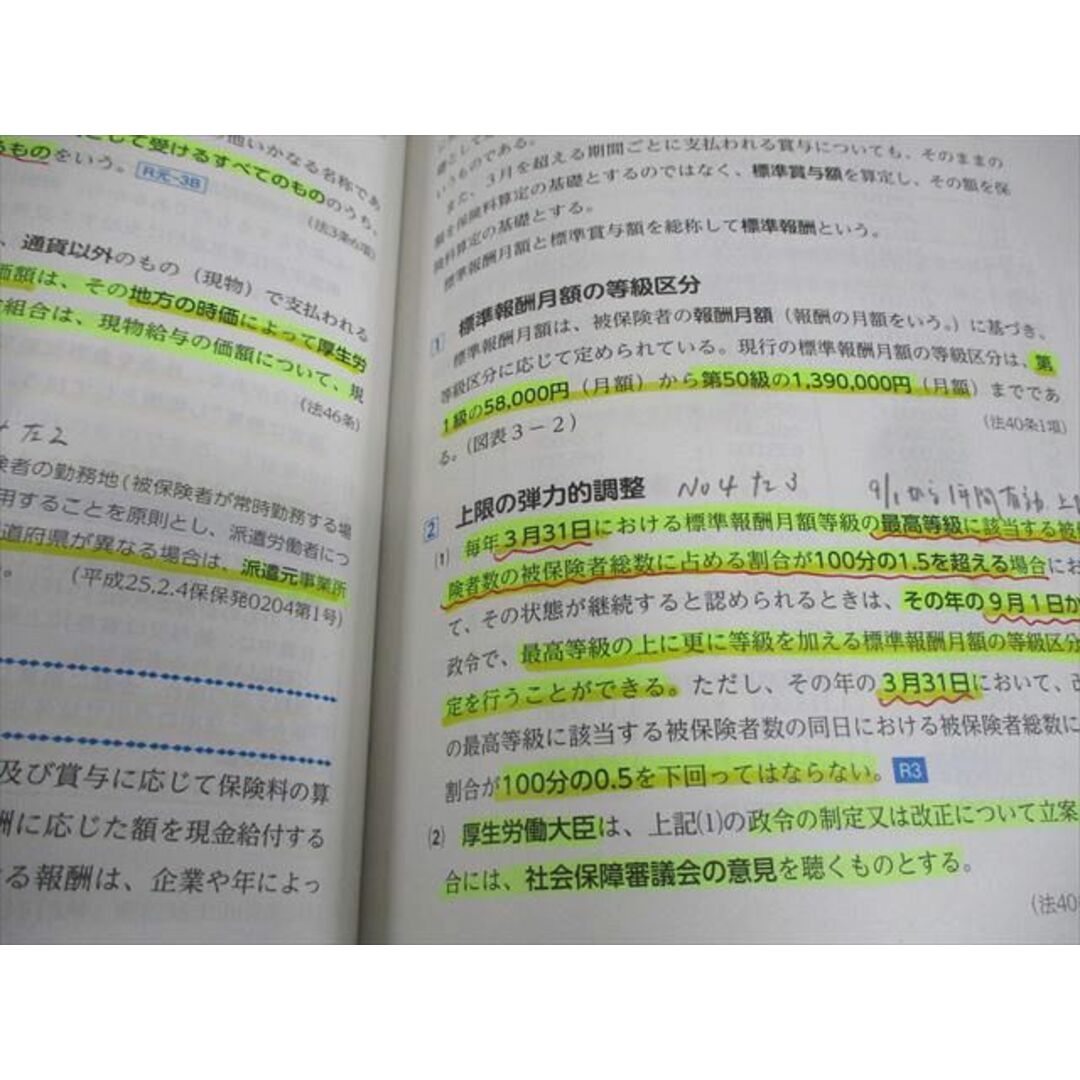 の他いかなる名称であ
として受けるすべてのもののうち、
るものをいう。 R元-3B
(法3条6項)
、通貨以外のもの（現物）で支払われる
価額は、その地方の時価によって厚生労
組合は、現物給与の価額について、規
(法46条)
4 た2
険者の勤務地(被保険者が常時勤務する場
用することを原則とし、派遣労働者につ
道府県が異なる場合は、派遣元事業所
。 (平成25.2.4保保発0204第1号)
及び賞与に応じて保険料の算
酬に応じた額を現金給付する
る報酬は、企業や年によっ
いうものである。
また、3月を超える期間ごとに支払われる賞与についても、そのままの
額を保険料算定の基礎とするのではなく、標準賞与額を算定し、その額を保
険料算定の基礎とする。
標準報酬月額と標準賞与額を総称して標準報酬という。
1 標準報酬月額の等級区分
標準報酬月額は、被保険者の報酬月額（報酬の月額をいう。）に基づき、
等級区分に応じて定められている。現行の標準報酬月額の等級区分は、第
1級の58,000円（月額）から第50級の1,390,000円（月額）までであ
る。（図表3－2）
(法40条1項)
2 上限の弾力的調整 No4 た3 9/1から1年間有効
(1) 毎年3月31日における標準報酬月額等級の最高等級に該当する被保
険者数の被保険者総数に占める割合が100分の1.5を超える場合にお
て、その状態が継続すると認められるときは、その年の9月1日か
政令で、最高等級の上に更に等級を加える標準報酬月額の等級区分
定を行うことができる。ただし、その年の3月31日において、改
の最高等級に該当する被保険者数の同日における被保険者総数に
割合が100分の0.5を下回ってはならない。 R3
(2) 厚生労働大臣は、上記(1)の政令の制定又は改正について立案
合には、社会保障審議会の意見を聴くものとする。
(法40